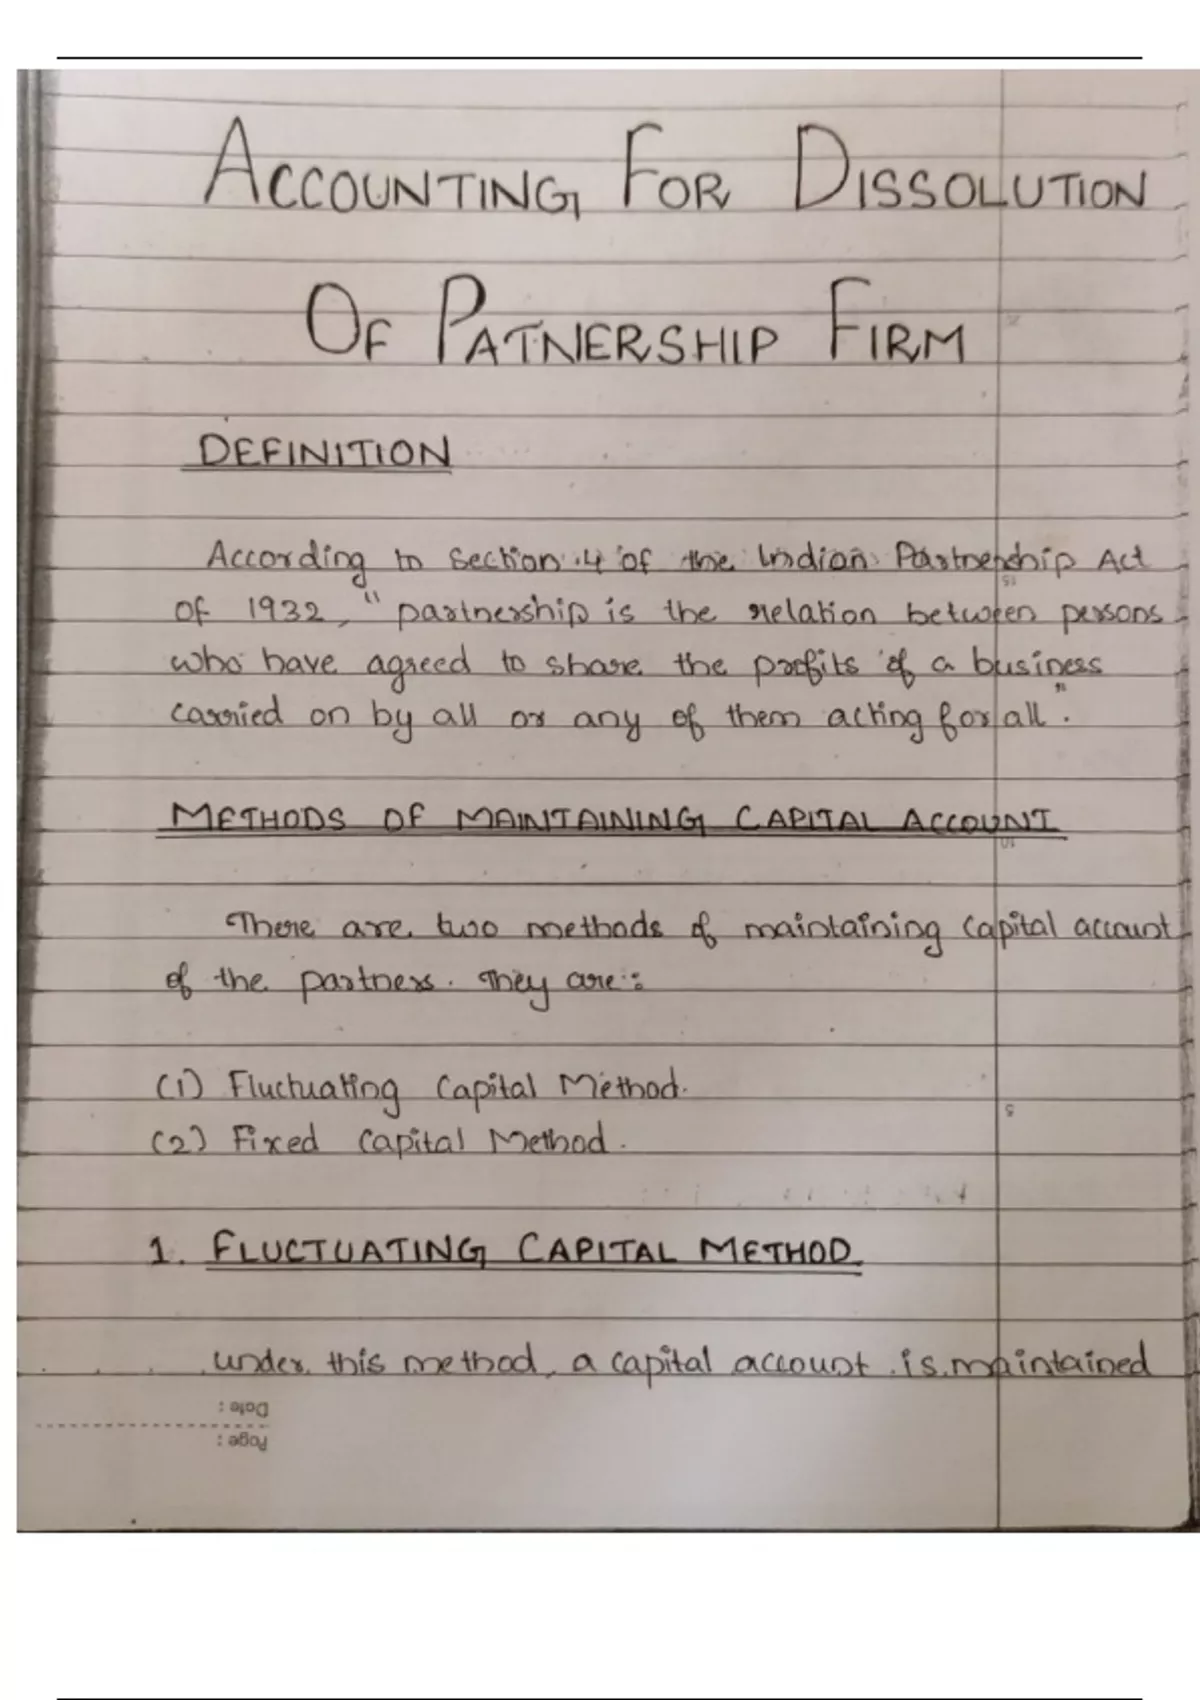 ACCOUNTING FOR DISSOLUTION
OF PATNERSHIP FIRM
DEFINITION
According to Section 4 of the Indian Partnership Act
of 1932, "partnership is the relation between persons
who have agreed to share the profits of a business
carried on by all or any of them acting for all".
METHODS OF MAINTAINING CAPITAL ACCOUNT
There are two methods of maintaining capital account
of the partners. They are:
(1) Fluctuating Capital Method.
(2) Fixed Capital Method.
1. FLUCTUATING CAPITAL METHOD.
under this method, a capital account is maintained
Date :
Page :